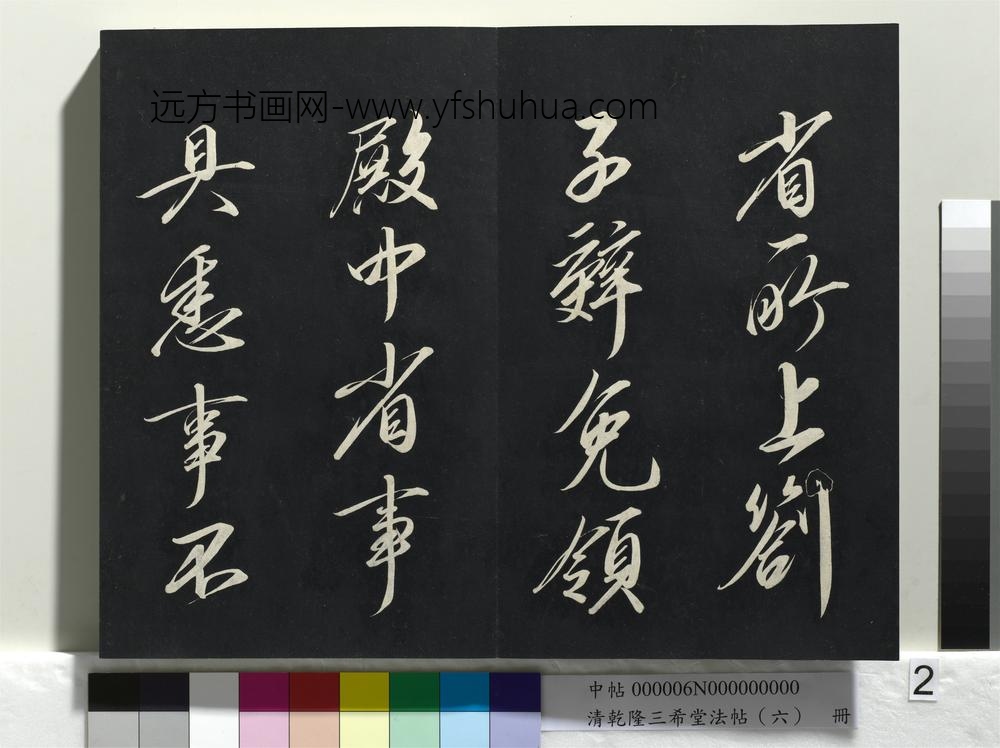 远方书画网-www.yfshuhua.com
省所上劄
子辤免領
殿中省事
具悉事不
2
中帖 000006N000000000
清乾隆三希堂法帖（六） 冊